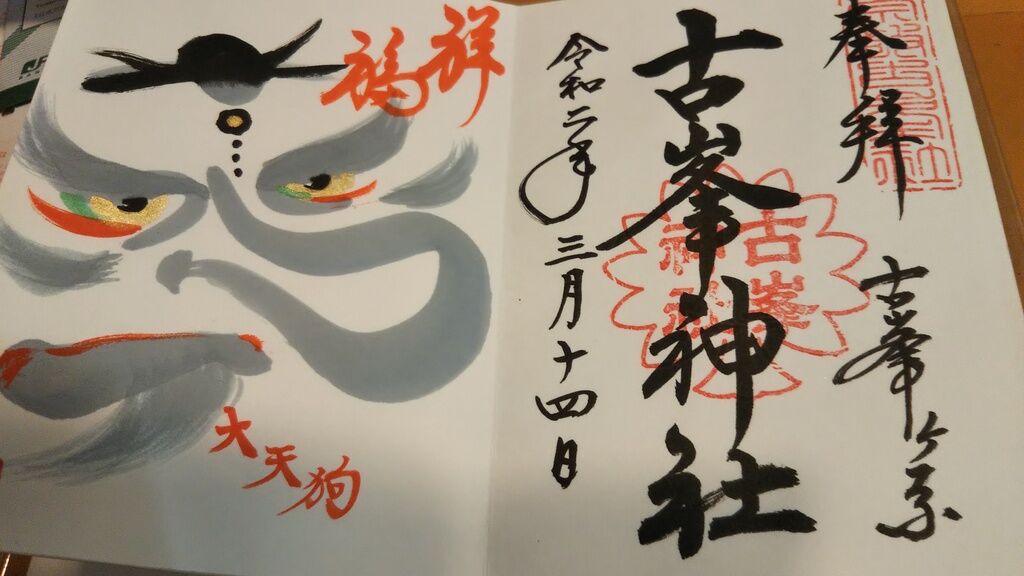 奉拝
古峯ヶ原
古峯神社
古峯
令和二年三月十四日
祥福
大天狗